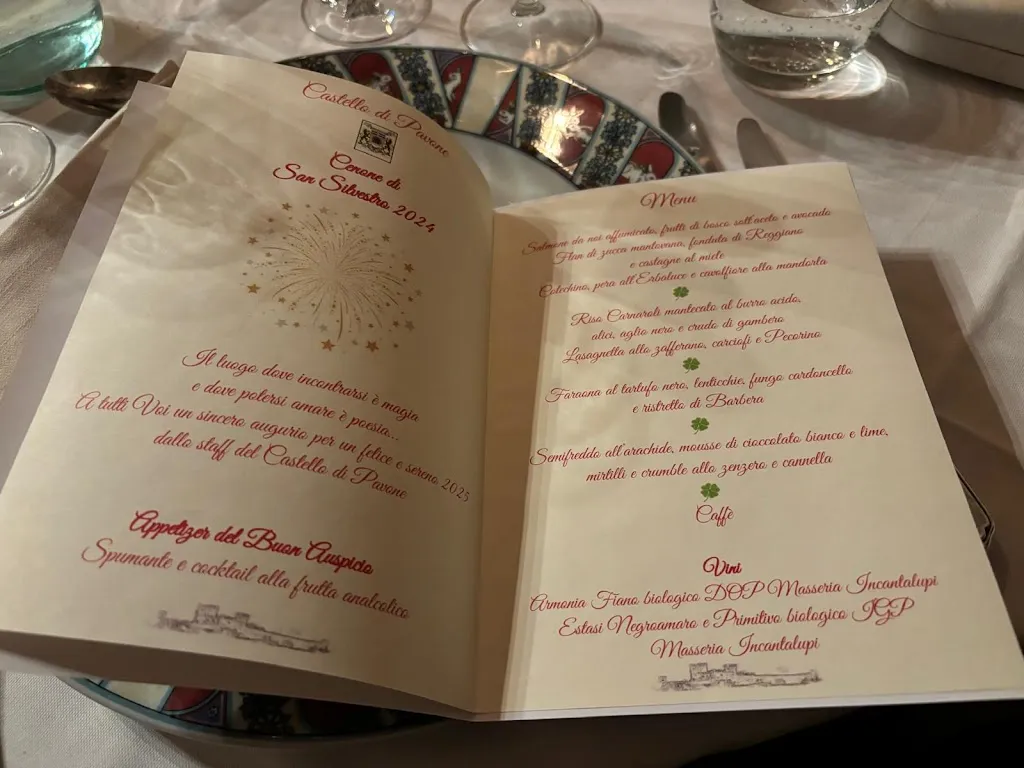 Castello di Pavone
Cenone di
San Silvestro 2024
Il luogo dove incontrarsi è magia
e dove potersi amare è poesia...
A tutti Voi un sincero augurio per un felice e sereno 2025
dallo staff del Castello di Pavone
Appetizer del Buon Auspicio
Spumante e cocktail alla frutta analcolico
Menu
Salmone da noi affumicato, frutti di bosco sott'aceto e avocado
Flan di zucca mantovana, fonduta di Reggiano
e castagne al miele
Cotechino, pera all'Erbaluce e cavolfiore alla mandorla
Riso Carnaroli mantecato al burro acido,
alici, aglio nero e crudo di gambero
Lasagnetta allo zafferano, carciofi e Pecorino
Faraona al tartufo nero, lenticchie, fungo cardoncello
e ristretto di Barbera
Semifreddo all'arachide, mousse di cioccolato bianco e lime,
mirtilli e crumble allo zenzero e cannella
Caffè
Vini
Armonia Fiano biologico DOP Masseria Incantalupi
Estasi Negroamaro e Primitivo biologico IGP
Masseria Incantalupi